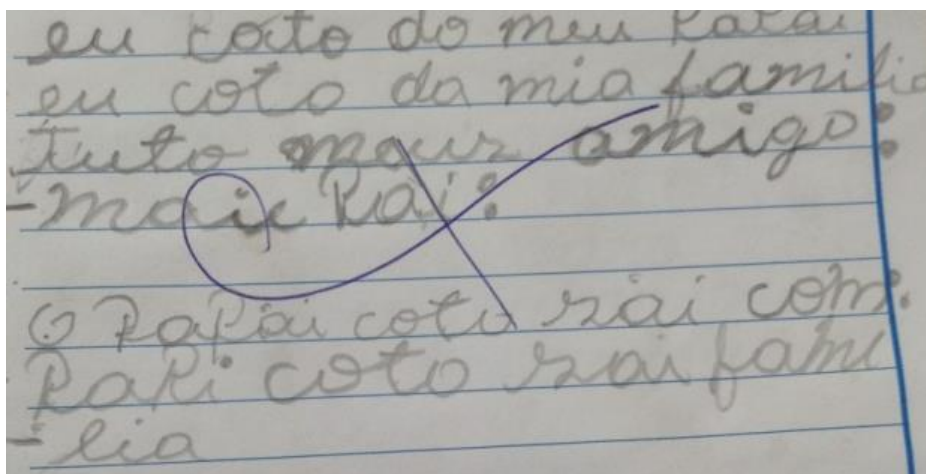 eu coto do meu papai
eu coto da mia familia
tuto meus amigo:
-maic pai:
O papai coto sai com.
papi coto sai fami
-lia